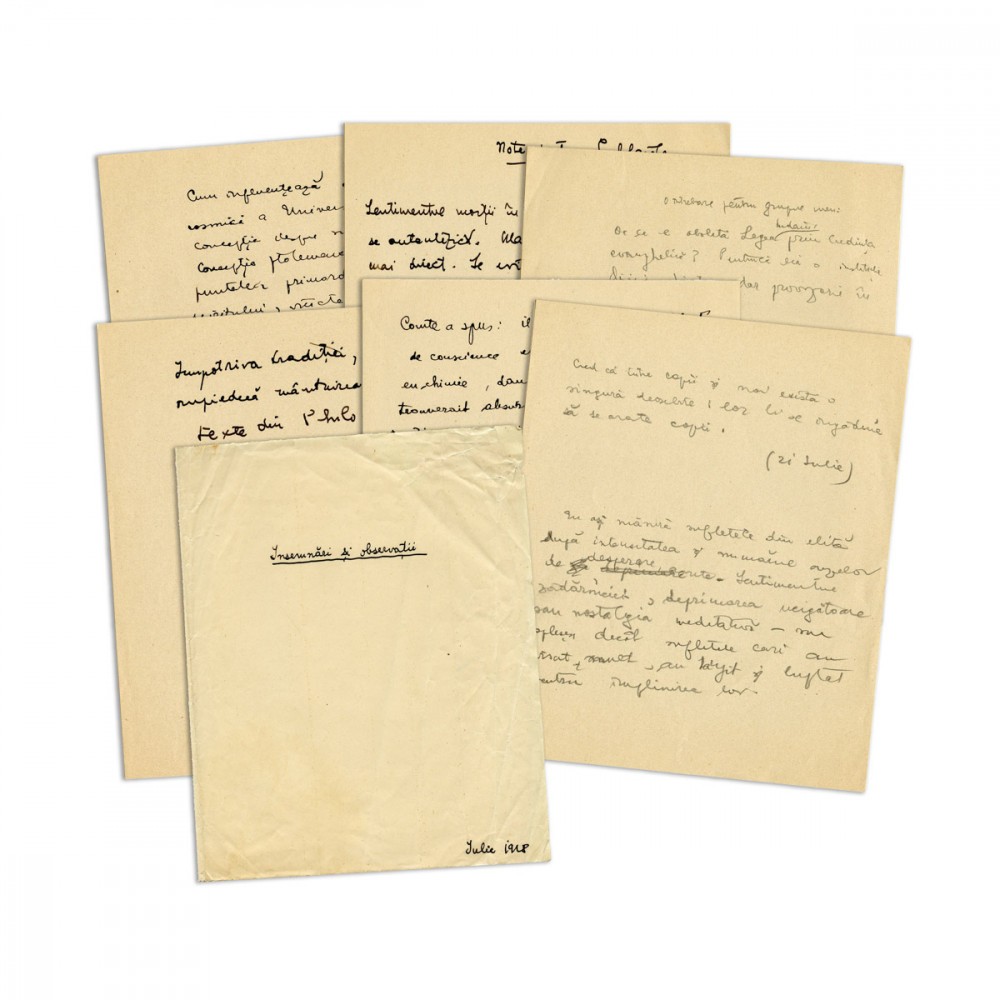 Cum influențează
cosmică a Univer
concepția despre
Concepția ptolemaic
punctelor primord
spiritului,
Note
Sentimentul morții în
se autentifică.
mai direct. Se
O întrebare pentru grupul meu:
De ce e obsoletă Legea iudaică prin Credința
evanghelică? Pentrucă ei o
dar provizorie în
Împotriva tradiției,
împiedică mântuirea
texte din Philo
Comte a spus: il
de conscience
en chimie, dan
trouverait absur
Cred că între copii și noi există o
singură deosebire; lor li se îngăduie
să se arate copii.
(21 Iulie)
Eu aș măsura sufletele din elită
după intensitatea și numărul crizelor
de desperare. Sentimentul
zădărniciei, deprimarea ucigătoare
sau nostalgia meditativă – nu
decât sufletele cari au
mult, au și luptat
pentru împlinirea lor.
Însemnări și observații
Iulie 1928